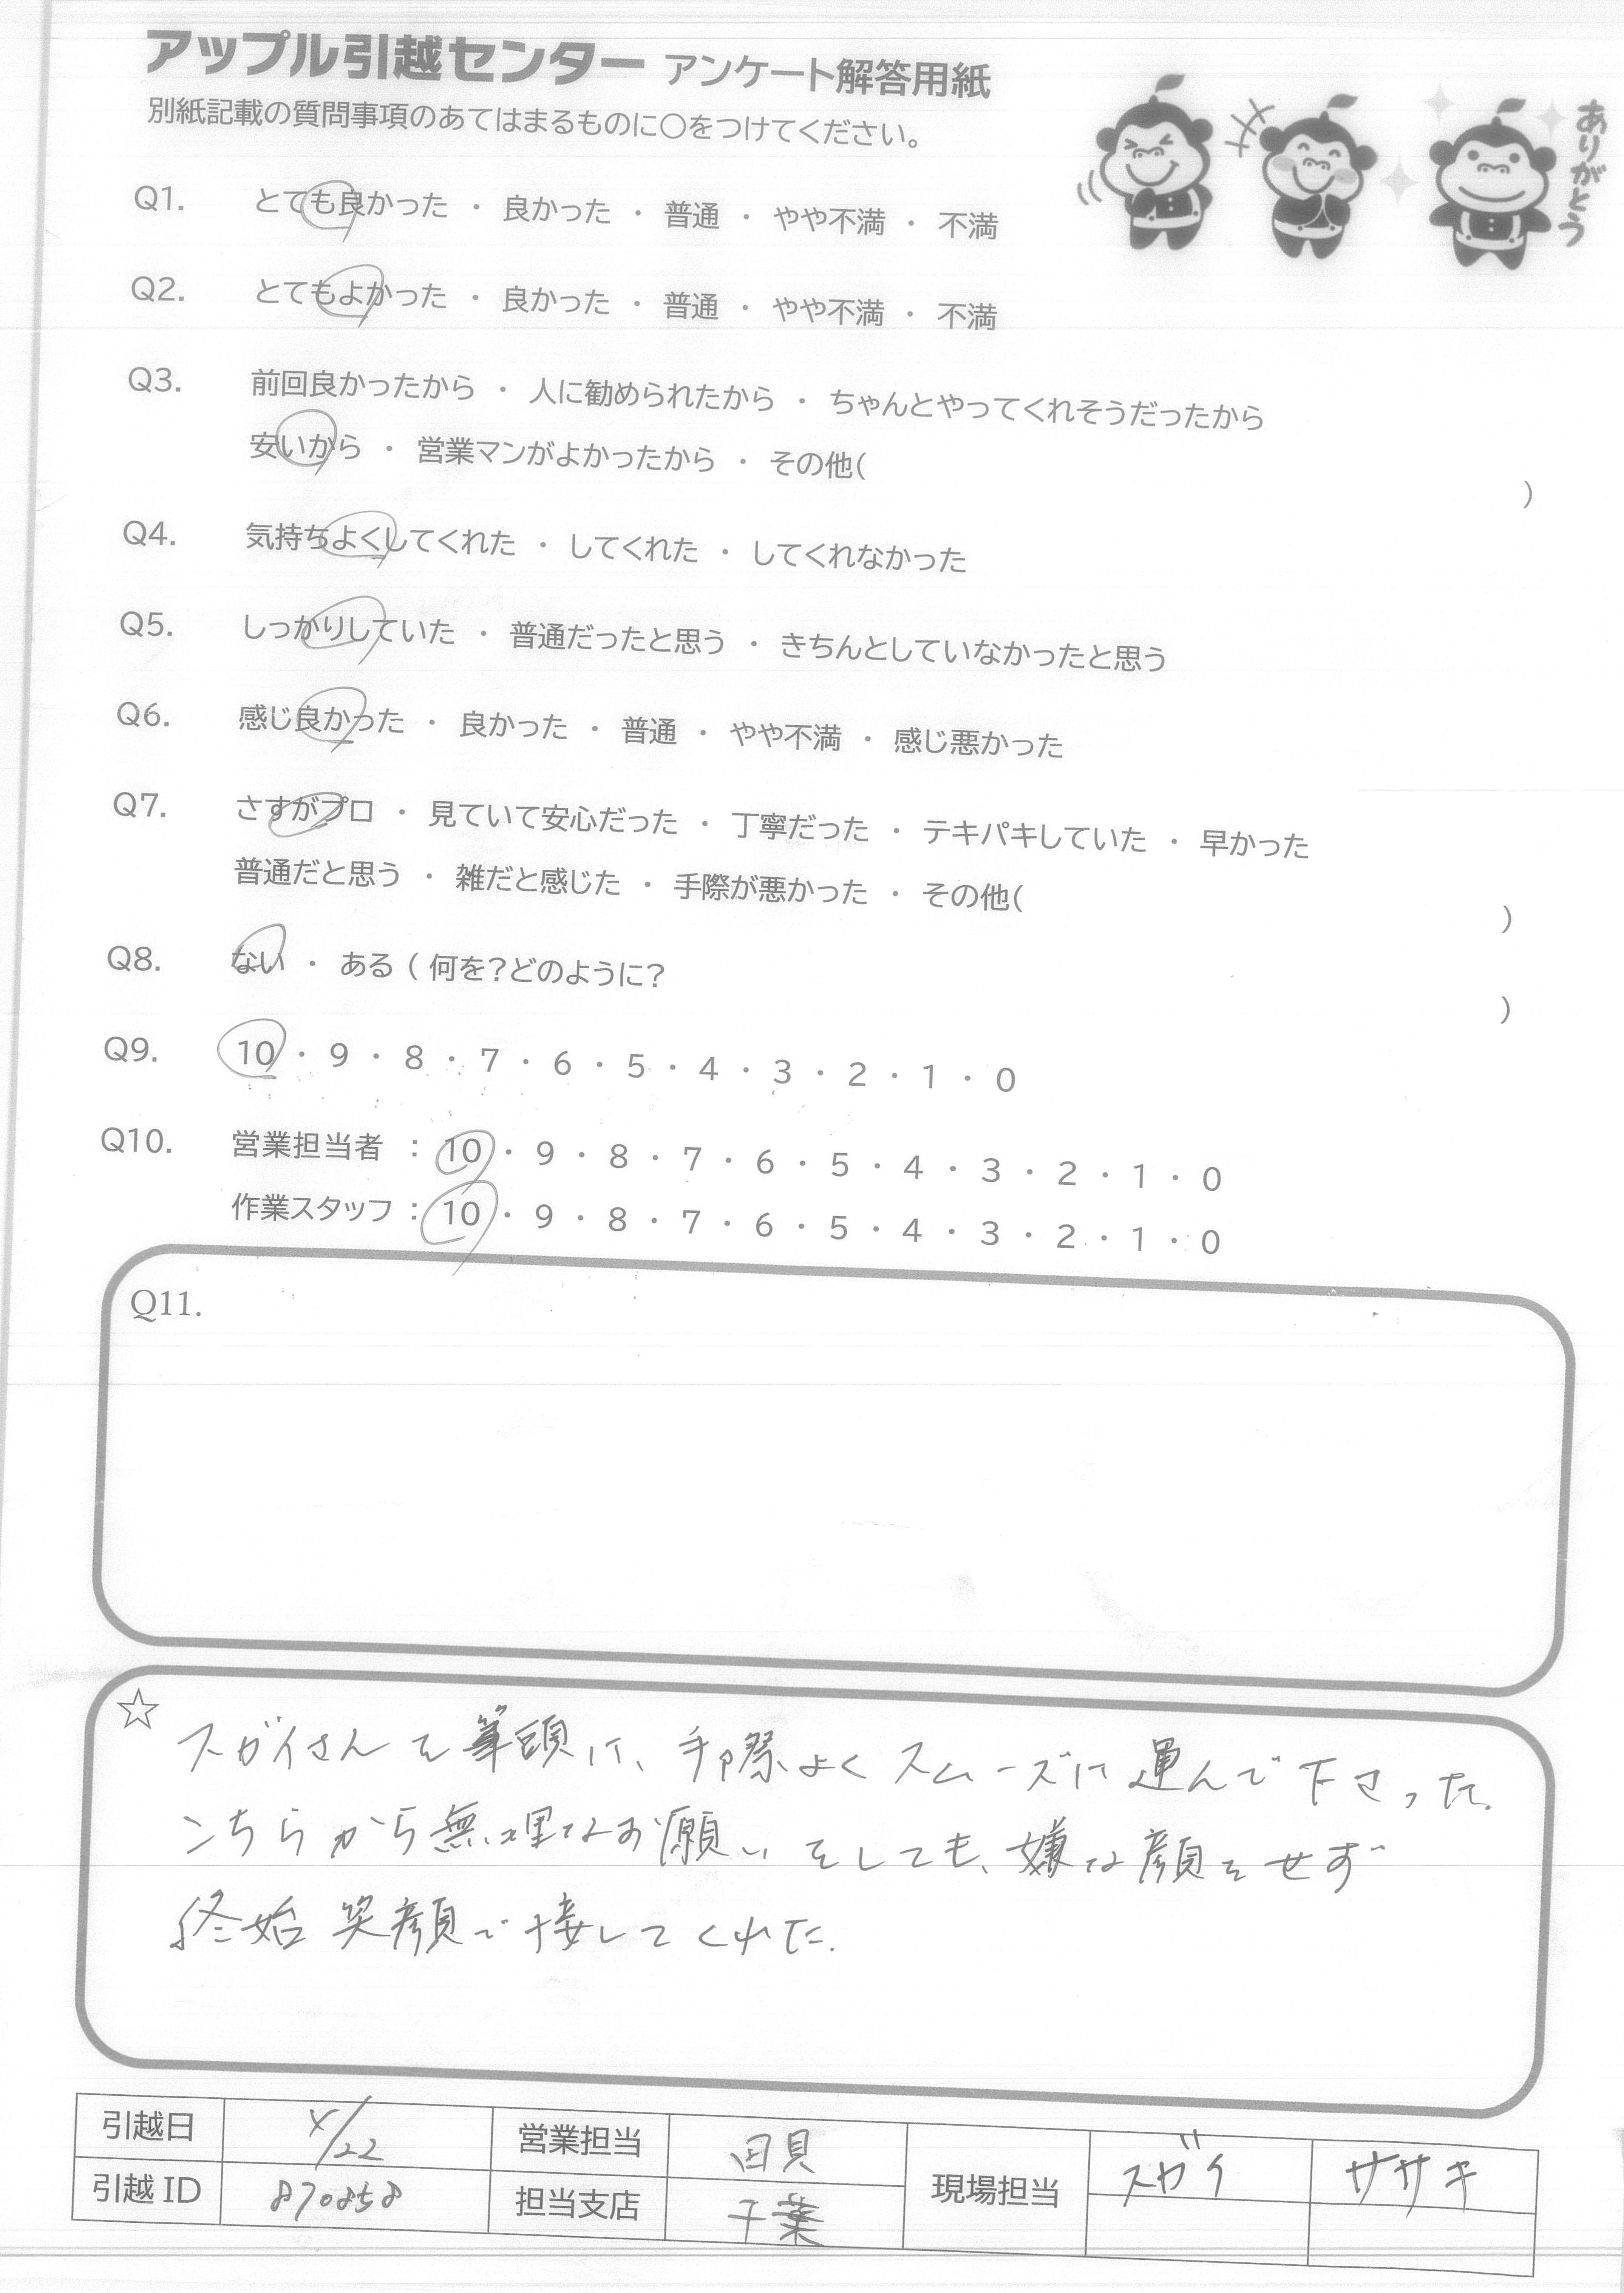 アップル引越センター アンケート解答用紙
別紙記載の質問事項のあてはまるものに〇をつけてください。
ありがとう
Q1. とても良かった ・ 良かった ・ 普通 ・ やや不満 ・ 不満
Q2. とてもよかった ・ 良かった ・ 普通 ・ やや不満 ・ 不満
Q3. 前回良かったから ・ 人に勧められたから ・ ちゃんとやってくれそうだったから
安いから ・ 営業マンがよかったから ・ その他( )
Q4. 気持ちよくしてくれた ・ してくれた ・ してくれなかった
Q5. しっかりしていた ・ 普通だったと思う ・ きちんとしていなかったと思う
Q6. 感じ良かった ・ 良かった ・ 普通 ・ やや不満 ・ 感じ悪かった
Q7. さすがプロ ・ 見ていて安心だった ・ 丁寧だった ・ テキパキしていた ・ 早かった
普通だと思う ・ 雑だと感じた ・ 手際が悪かった ・ その他( )
Q8. ない ・ ある ( 何を?どのように? )
Q9. 10 ・ 9 ・ 8 ・ 7 ・ 6 ・ 5 ・ 4 ・ 3 ・ 2 ・ 1 ・ 0
Q10. 営業担当者 : 10 ・ 9 ・ 8 ・ 7 ・ 6 ・ 5 ・ 4 ・ 3 ・ 2 ・ 1 ・ 0
作業スタッフ : 10 ・ 9 ・ 8 ・ 7 ・ 6 ・ 5 ・ 4 ・ 3 ・ 2 ・ 1 ・ 0
Q11.
☆ スガイさんを筆頭に、手際よくスムーズに運んで下さった。
こちらから無理なお願いをしても、嫌な顔をせず
終始笑顔で接してくれた.
引越日 4/22 営業担当 現場担当 スガイ ササキ
引越ID 870858 担当支店 千葉